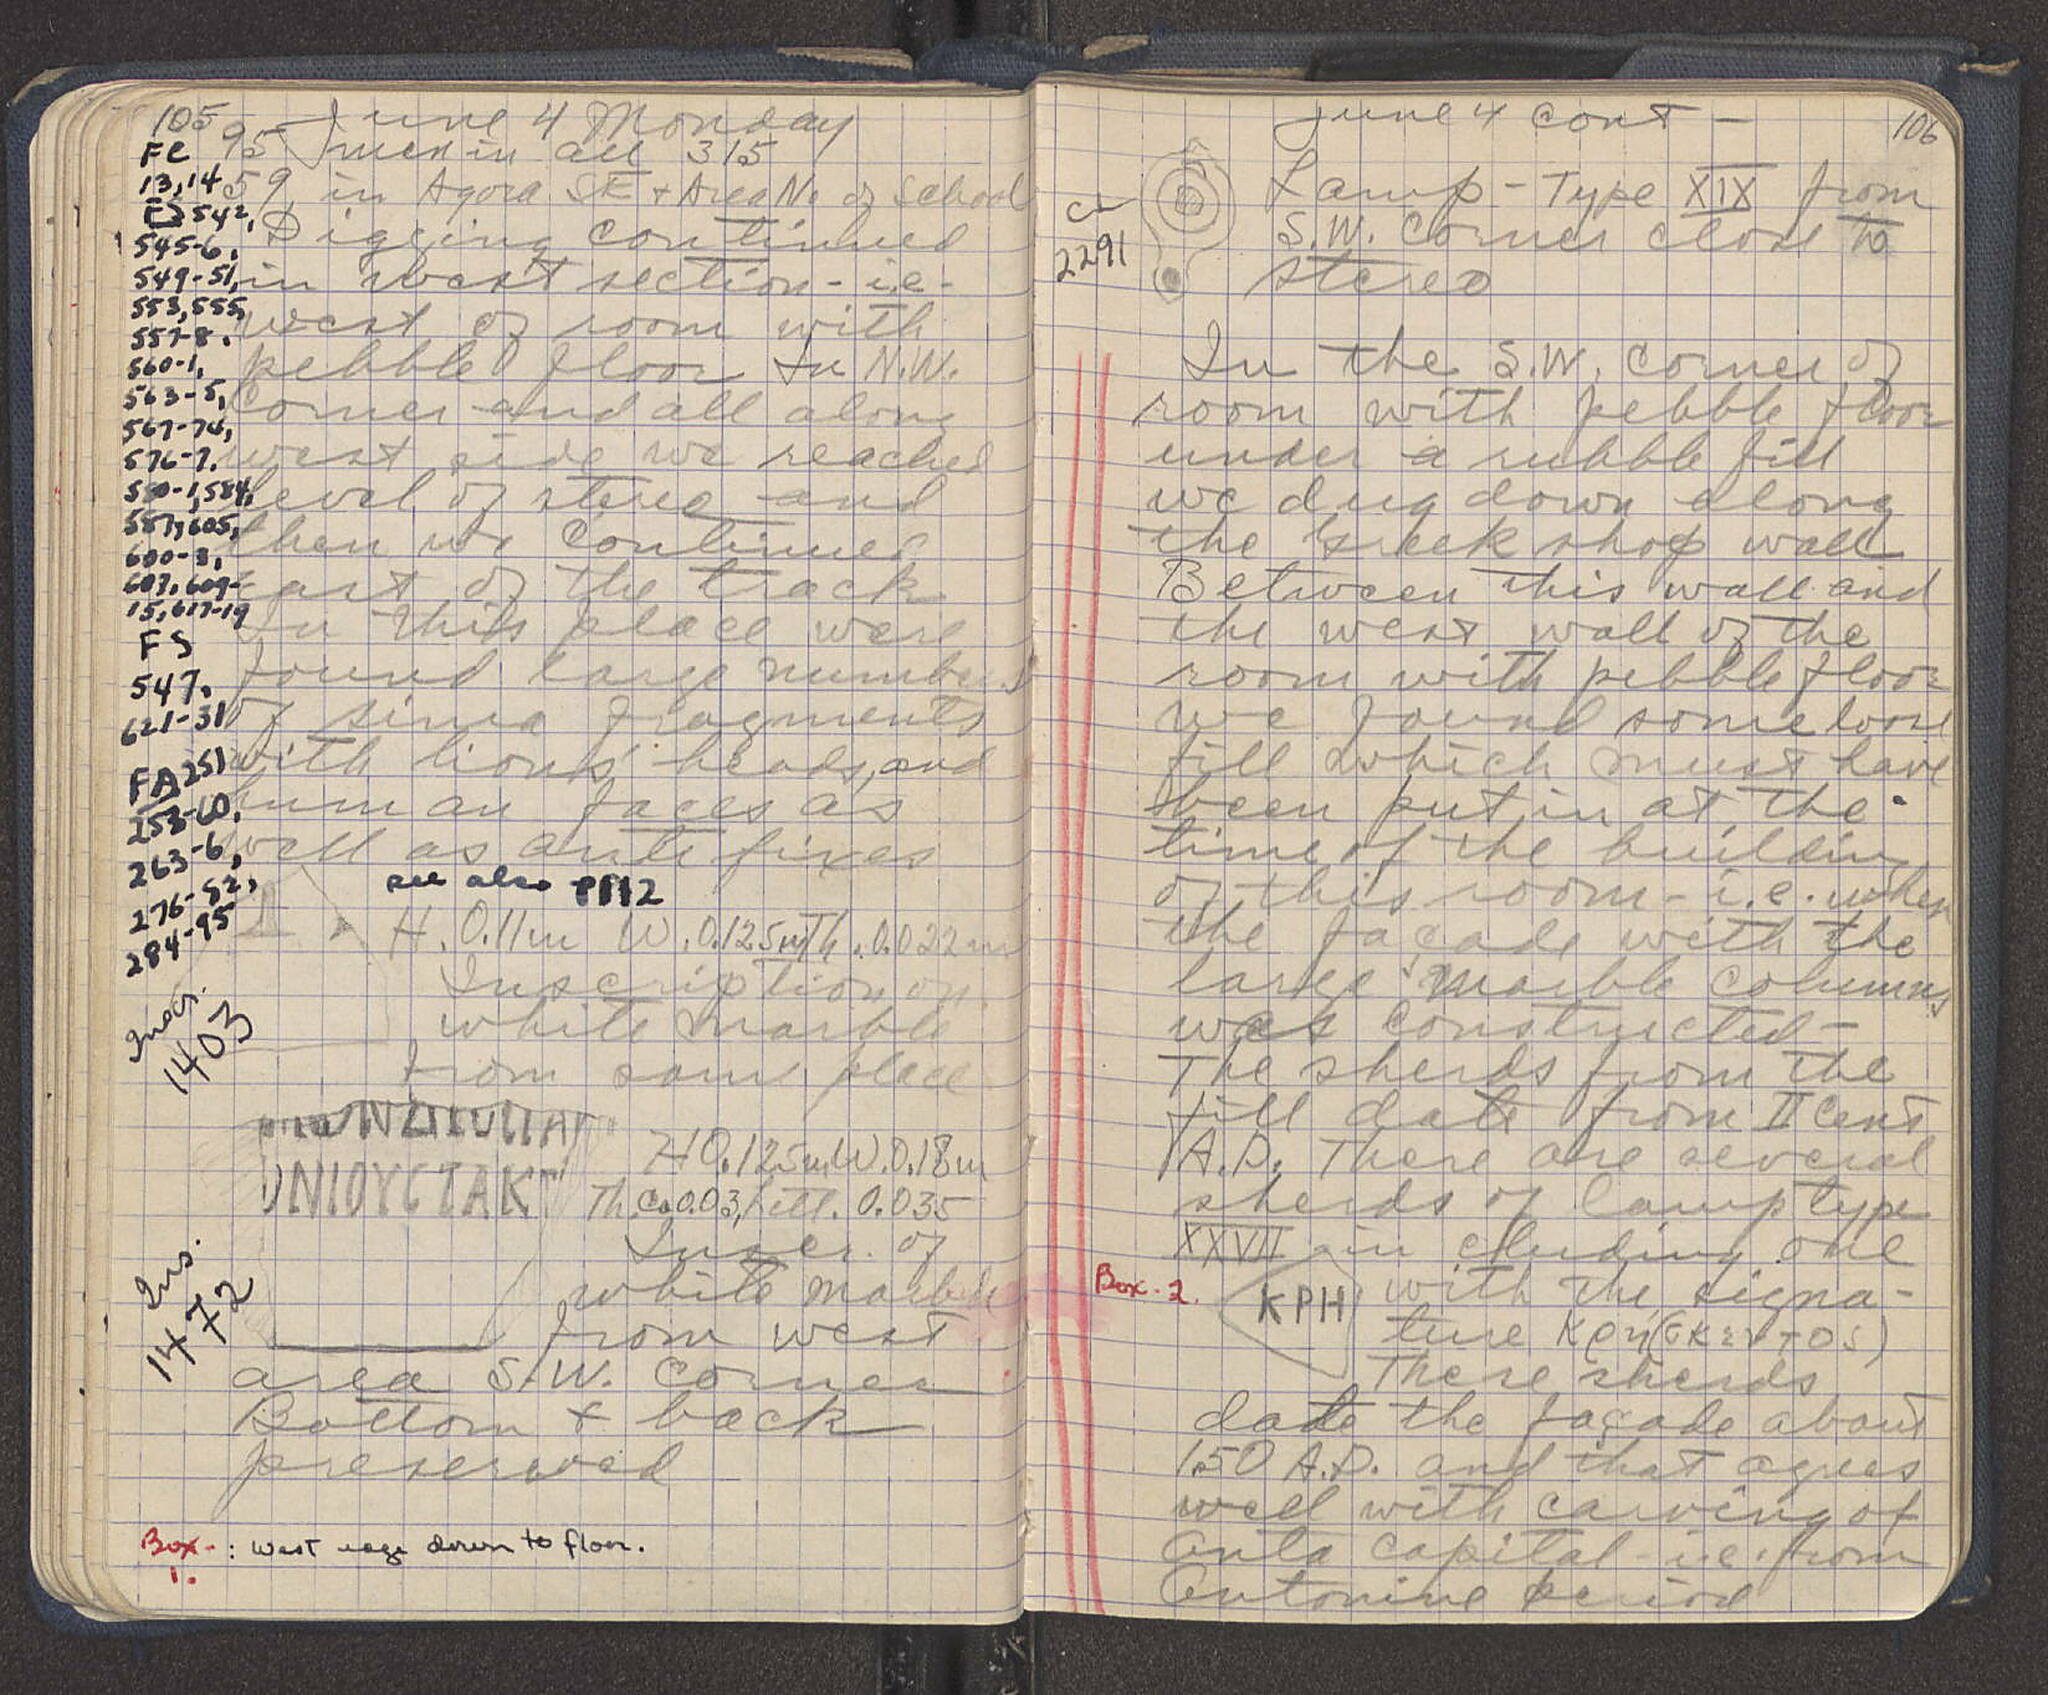 105
June 4 Monday
95 men in all 315
59 in Agora SE + Area No. of School
Digging continued
in west section - i.e -
west of room with
pebble floor In N.W.
corner and all along
west side we reached
level of stereo and
then we continued
east of the track
In this place were
found large numbers
of sima fragments
with lions' heads, and
human faces as
well as antefixes
see also P112
H. 0.11m W. 0.125m Th. 0.022m
Inscription on
white marble
from same place
ΩΝΙΟΥCΤΑΚ
H 0.125m W. 0.18m
Th. Ca 0.03, lett. 0.035
Inscr. of
white marble
from west
area S.W. corner
Bottom + back
preserved
Box - : west edge down to floor.
1.
FC
13,14
FS 542,
545-6,
549-51,
553,555,
557-8.
560-1,
563-5,
567-74,
576-7.
580-1,584,
587,605,
600-3,
607,609-
15,617-19
FS
547.
621-31
FA 251
253-60.
263-6,
276-82,
284-95
Inscr.
1403
Ins.
1472
June 4 cont -
106
CL
2291
Lamp - Type XIX from
S.W. corner close to
stereo
In the S.W. corner of
room with pebble floor
under a rubble fill
we dug down along
the Greek shop wall
Between this wall and
the west wall of the
room with pebble floor
we found some loose
fill which must have
been put in at the
time of the building
of this room - i.e. when
the façade with the
large marble columns
was constructed -
The sherds from the
fill date from II Cent
A.D. There are several
sherds of lamp type
XXVII including one
Box - 2.
ΚΡΗ
with the signa-
ture
These sherds
date the façade about
150 A.D. and that agrees
well with carving of
Anta capital - i.e. from
Antonine period